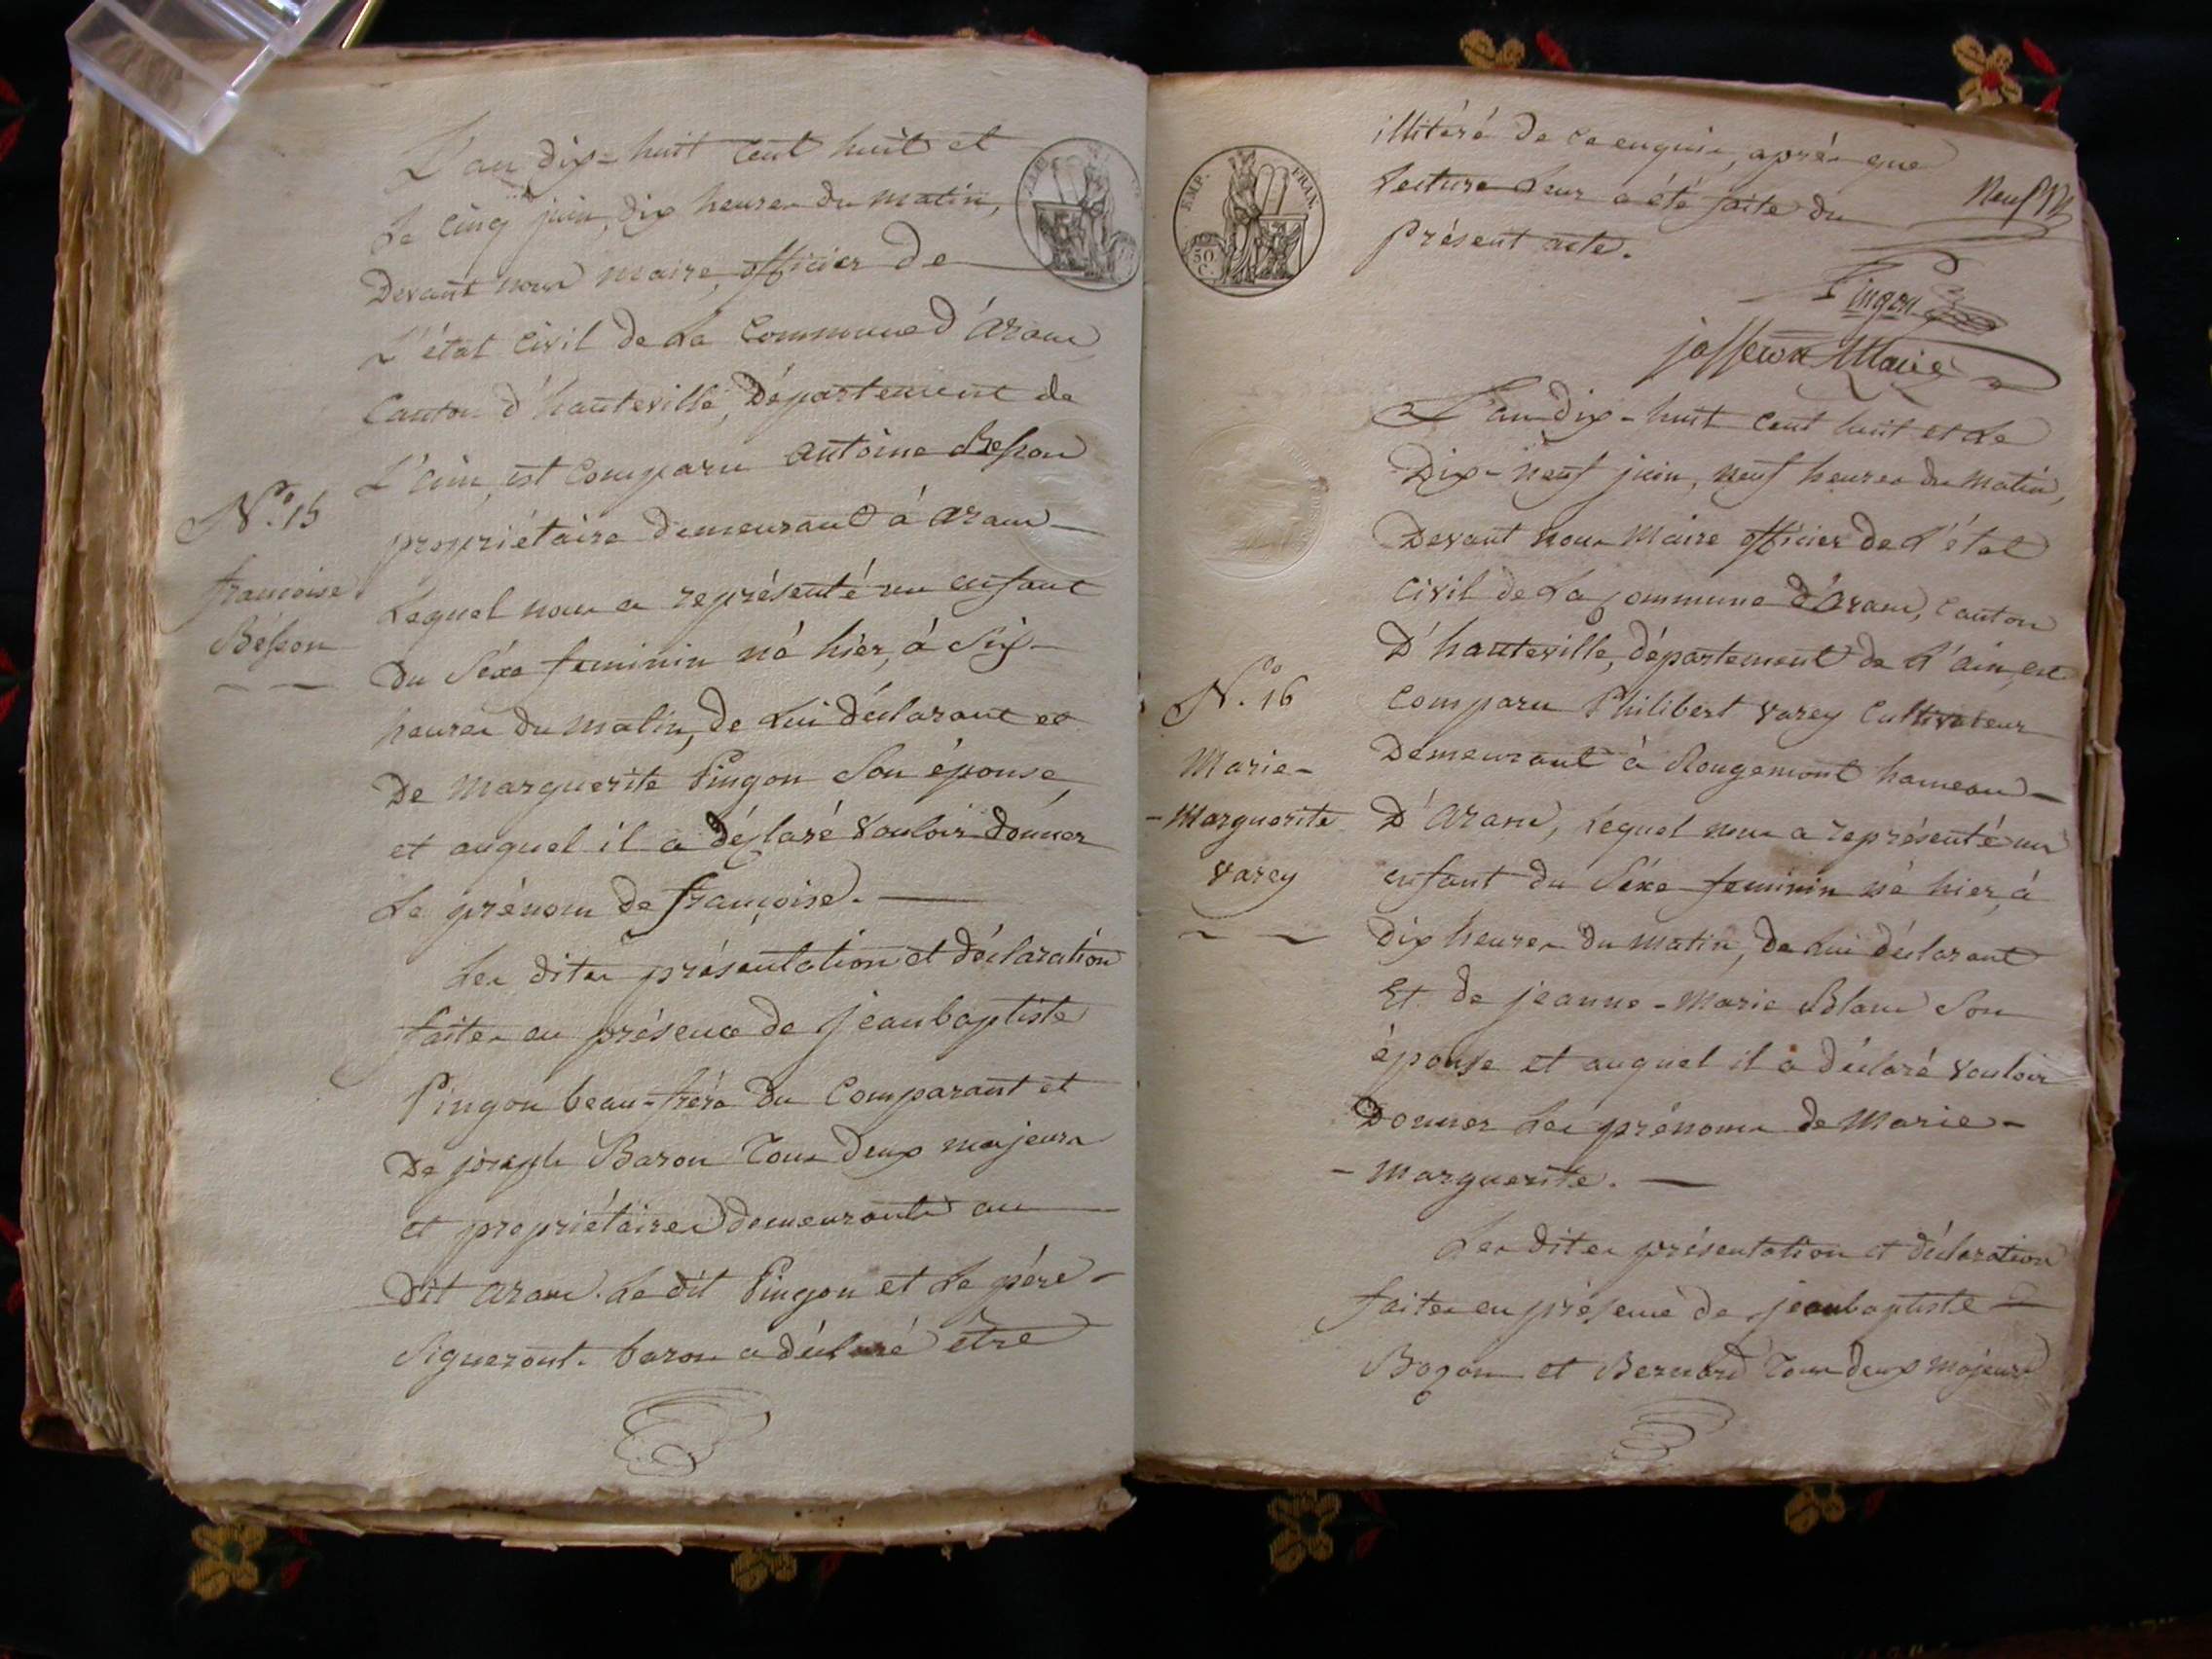 L'an dix-huit cent huit et
Le cinq juin, dix heures du matin,
Devant nous maire, officier de
L'état Civil de La Commune d'Aranc
Canton d'hauteville, Département de
L'ain, est Comparu antoine Besson
propriétaire demeurant à aranc
Lequel nous a représenté un enfant
du Séxe feminin né hier, à Six
heures du matin, de Lui déclarant et
De marguerite Pingon Son épouse,
et auquel il a déclaré Vouloir donner
Le prénom de françoise.
Les dites présentation et déclaration
faites en présence de jean baptiste
Pingon beau-frère du Comparant et
De joseph Baron Tous deux majeurs
et propriétaires demeurants au
dit aranc. Le dit Pingon et Le père
Signeront. baron a déclaré être
N.º 15
françoise
Bésson
EMP. FRAN.
50 C.
illitéré de ce enquis, après que
Lecture Leur a été faite du
Présent acte.
Neuf
Pingon
josseron Maire
L'an dix-huit cent huit et Le
Dix-neuf juin, neuf heures du matin,
Devant nous Maire officier de L'état
Civil de La Commune d'Aranc, Canton
D'hauteville, département de L'ain, est
Comparu Philibert Varey Cultivateur
Demeurant à Rougemont hameau
D'Aranc, Lequel nous a représenté un
enfant du Séxe feminin né hier, à
Dix heures du matin, de Lui déclarant
Et de jeanne-Marie Blanc Son
épouse et auquel il a déclaré Vouloir
Donner Les prénoms de Marie-
-Marguerite.
Les dites présentation et déclaration
faites en présence de jean baptiste
et Bernard Tous deux majeurs
N.º 16
Marie-
-Marguerite
Varey